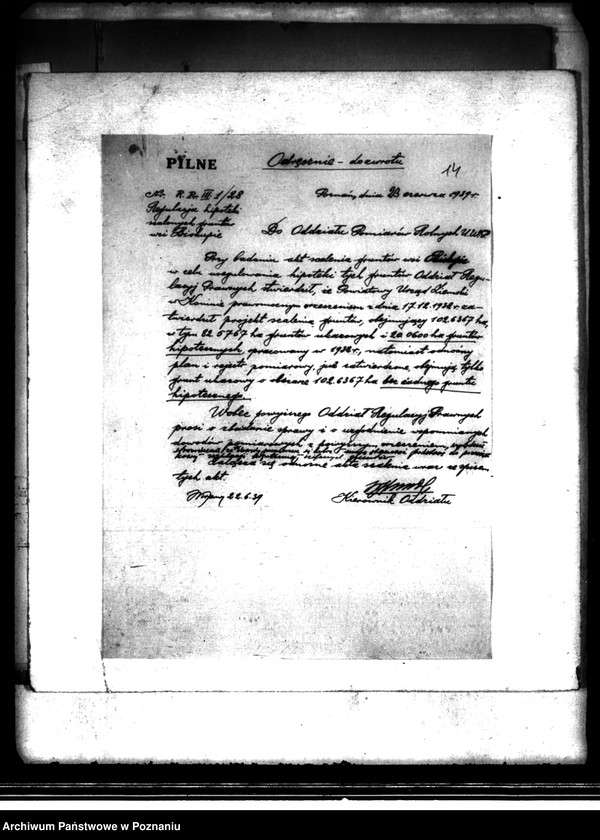 PILNE
Odręcznie - do zwrotu
14
Nr. R. Pr. III 1/28
Poznań, dnia 23 czerwca 1939 r.
Regulacja hipoteki
scalonych gruntów
wsi Biskupie
Do Oddziału Pomiarów Rolnych U.W.P.
Przy badaniu akt scalenia gruntów wsi Biskupie
w celu uregulowania hipoteki tych gruntów Oddział Regu-
lacyj Prawnych stwierdził, że Powiatowy Urząd Ziemski
w Koninie prawomocnym orzeczeniem z dnia 17.12.1932 r. za-
twierdził projekt scalenia gruntów, obejmujący 102.6367 ha,
w tym 82.5767 ha gruntów ukazowych i 20.0600 ha gruntów
hipotecznych, opracowany w 1932 r., natomiast odnośny
plan i rejestr pomiarowy, już zatwierdzone, obejmują tylko
grunt ukazowy o obszarze 102.6367 ha bez żadnego gruntu
hipotecznego.
Wobec powyższego Oddział Regulacyj Prawnych
prosi o zbadanie sprawy i o uzgodnienie wspomnianych
dowodów pomiarowych z powyższym orzeczeniem,
Załącza się odnośne akta scalenia wraz ze spisem
tych akt.
22.6.39
Kierownik Oddziału
Archiwum Państwowe w Poznaniu